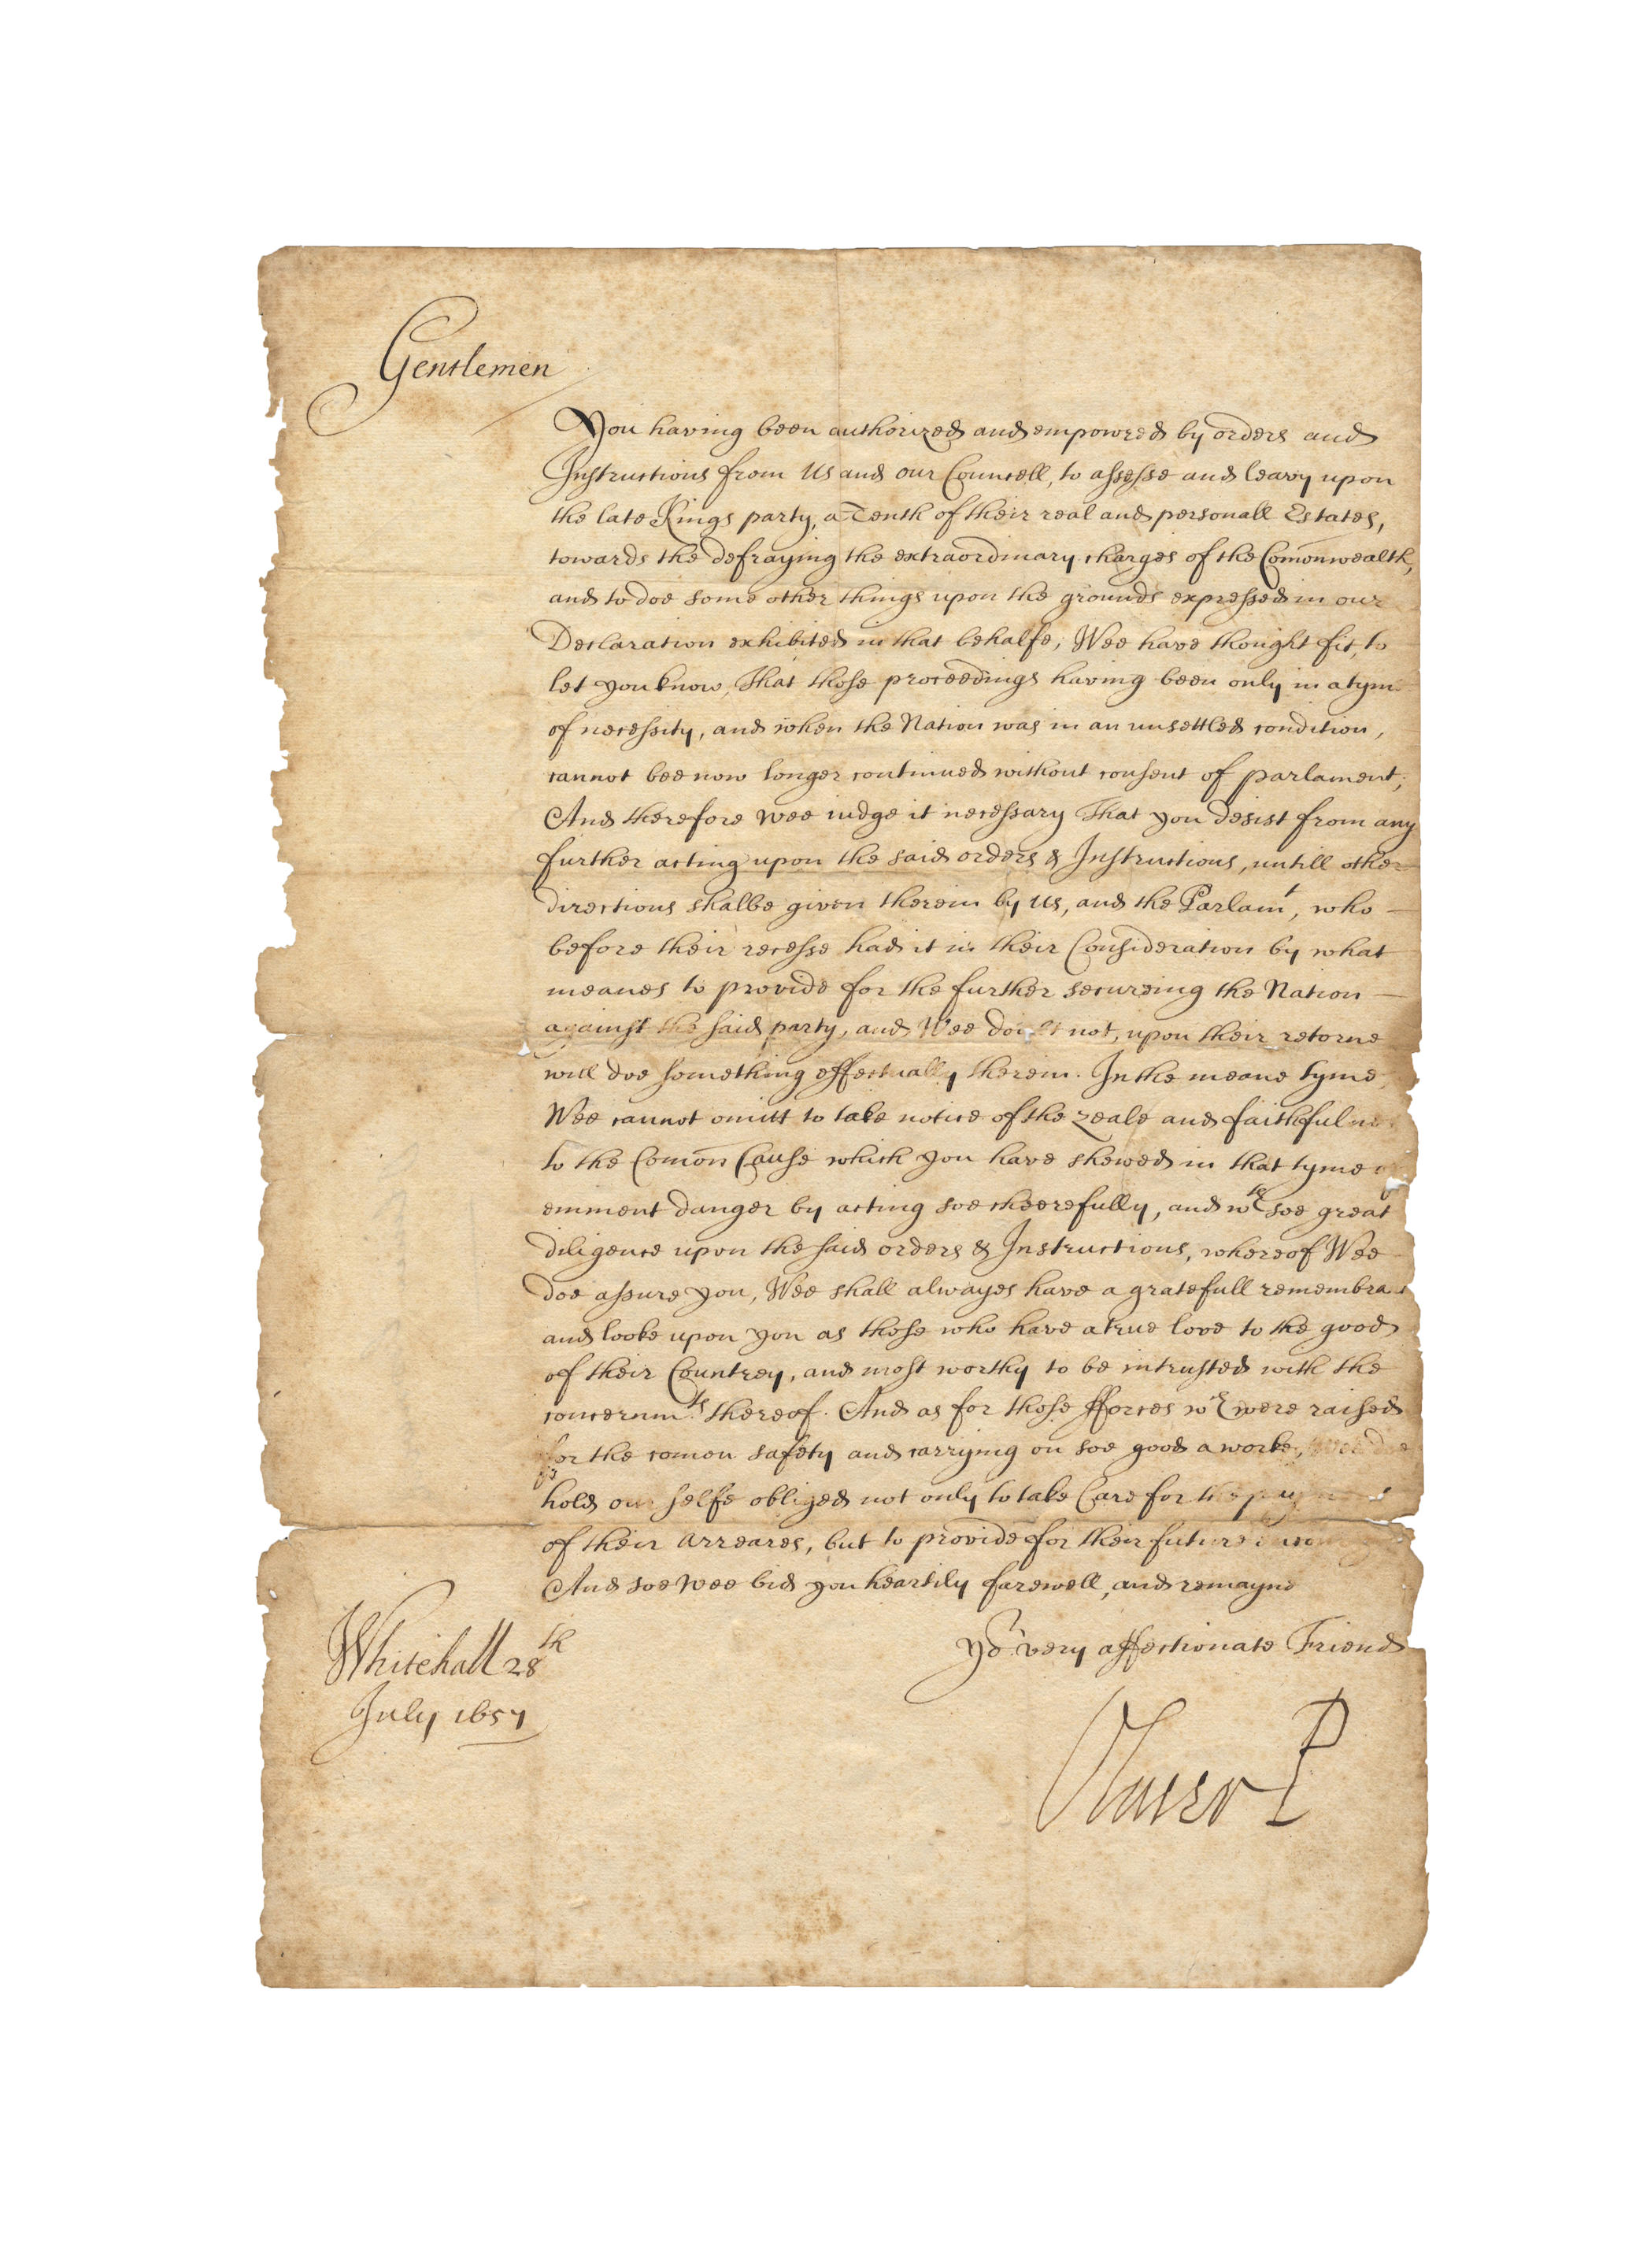 Gentlemen
You having been authorized and empowred by orders and
Instructions from Us and our Councell, to assesse and leavy upon
the late Kings party, a Tenth of their real and personall Estates,
towards the defraying the extraordinary charges of the Comonwealth,
and to doe some other things upon the grounds expressed in our
Declaration exhibited in that behalfe, Wee have thought fit, to
let you know, That those proceedings having been only in a tyme
of necessity, and when the Nation was in an unsettled condition,
cannot bee now longer continued without consent of parlament;
And therefore wee iudge it necessary That you desist from any
further acting upon the said orders & Instructions, untill other
directions shalbe given therein by Us, and the Parlamt, who —
before their recesse had it in their Consideration by what
meanes to provide for the further secureing the Nation —
against the said party, and Wee doubt not, upon their retorne
will doe something effectually therein. In the meane tyme,
Wee cannot omitt to take notice of the zeale and faithfulnes
to the Comon Cause which you have shewed in that tyme of
eminent danger by acting soe cheerefully, and wth soe great
diligence upon the said orders & Instructions, whereof Wee
doe assure you, Wee shall alwayes have a gratefull remembra
and looke upon you as those who have a true love to the good
of their Countrey, and most worthy to be intrusted with the
concernmts thereof. And as for those fforces wch were raised
for the comon safety and carrying on soe good a worke, Wee doe
hold our selfe obliged not only to take Care for the paymt
of their Arreares, but to provide for their future
And soe wee bid you heartily farewell, and remayne
Yor very affectionate Friend
Whitehall 28th
July 1657
Oliver P